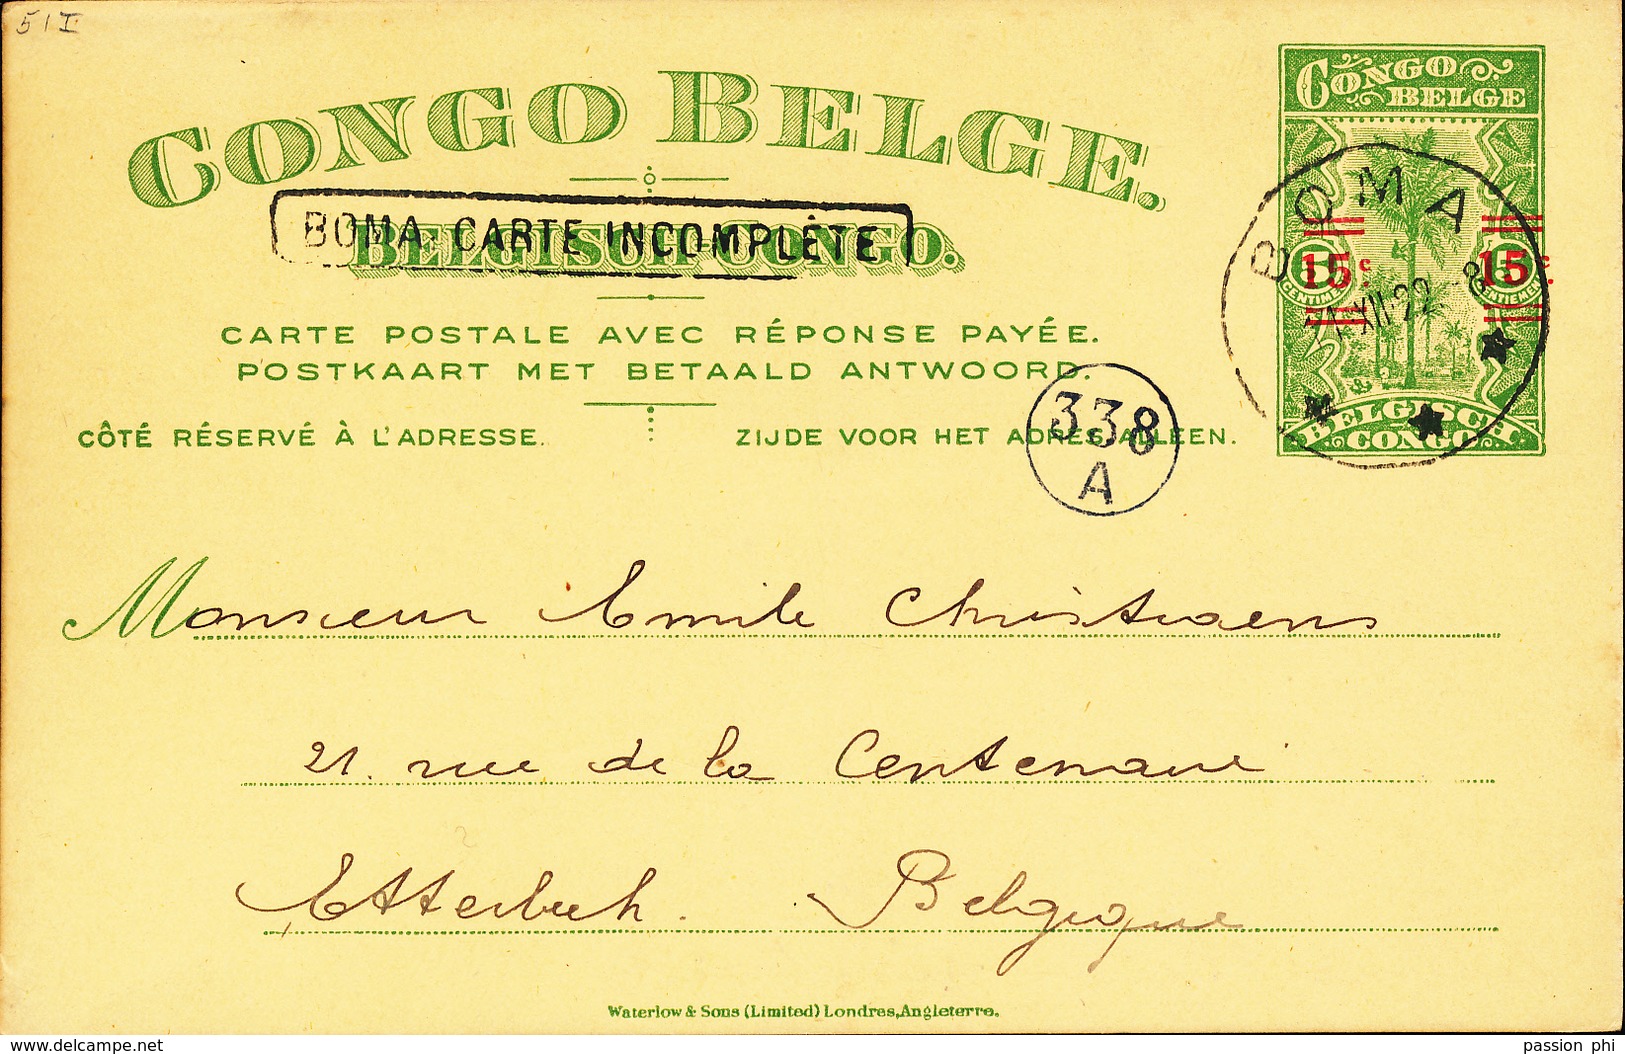 51I
CONGO BELGE.
BELGISCH-CONGO.
BOMA. CARTE INCOMPLÈTE
CARTE POSTALE AVEC RÉPONSE PAYÉE.
POSTKAART MET BETAALD ANTWOORD.
CÔTÉ RÉSERVÉ À L'ADRESSE.
ZIJDE VOOR HET ADRES ALLEEN.
338
A
CONGO
BELGE
BOMA
15c. 15c.
CENTIMES CENTIEMEN
XII.22 -8
BELGISCH
CONGO
Monsieur Emile Christiaens
21. rue de la Centenaire
Etterbeek. Belgique
Waterlow & Sons (Limited) Londres, Angleterre.
delcampe.net
passion phi